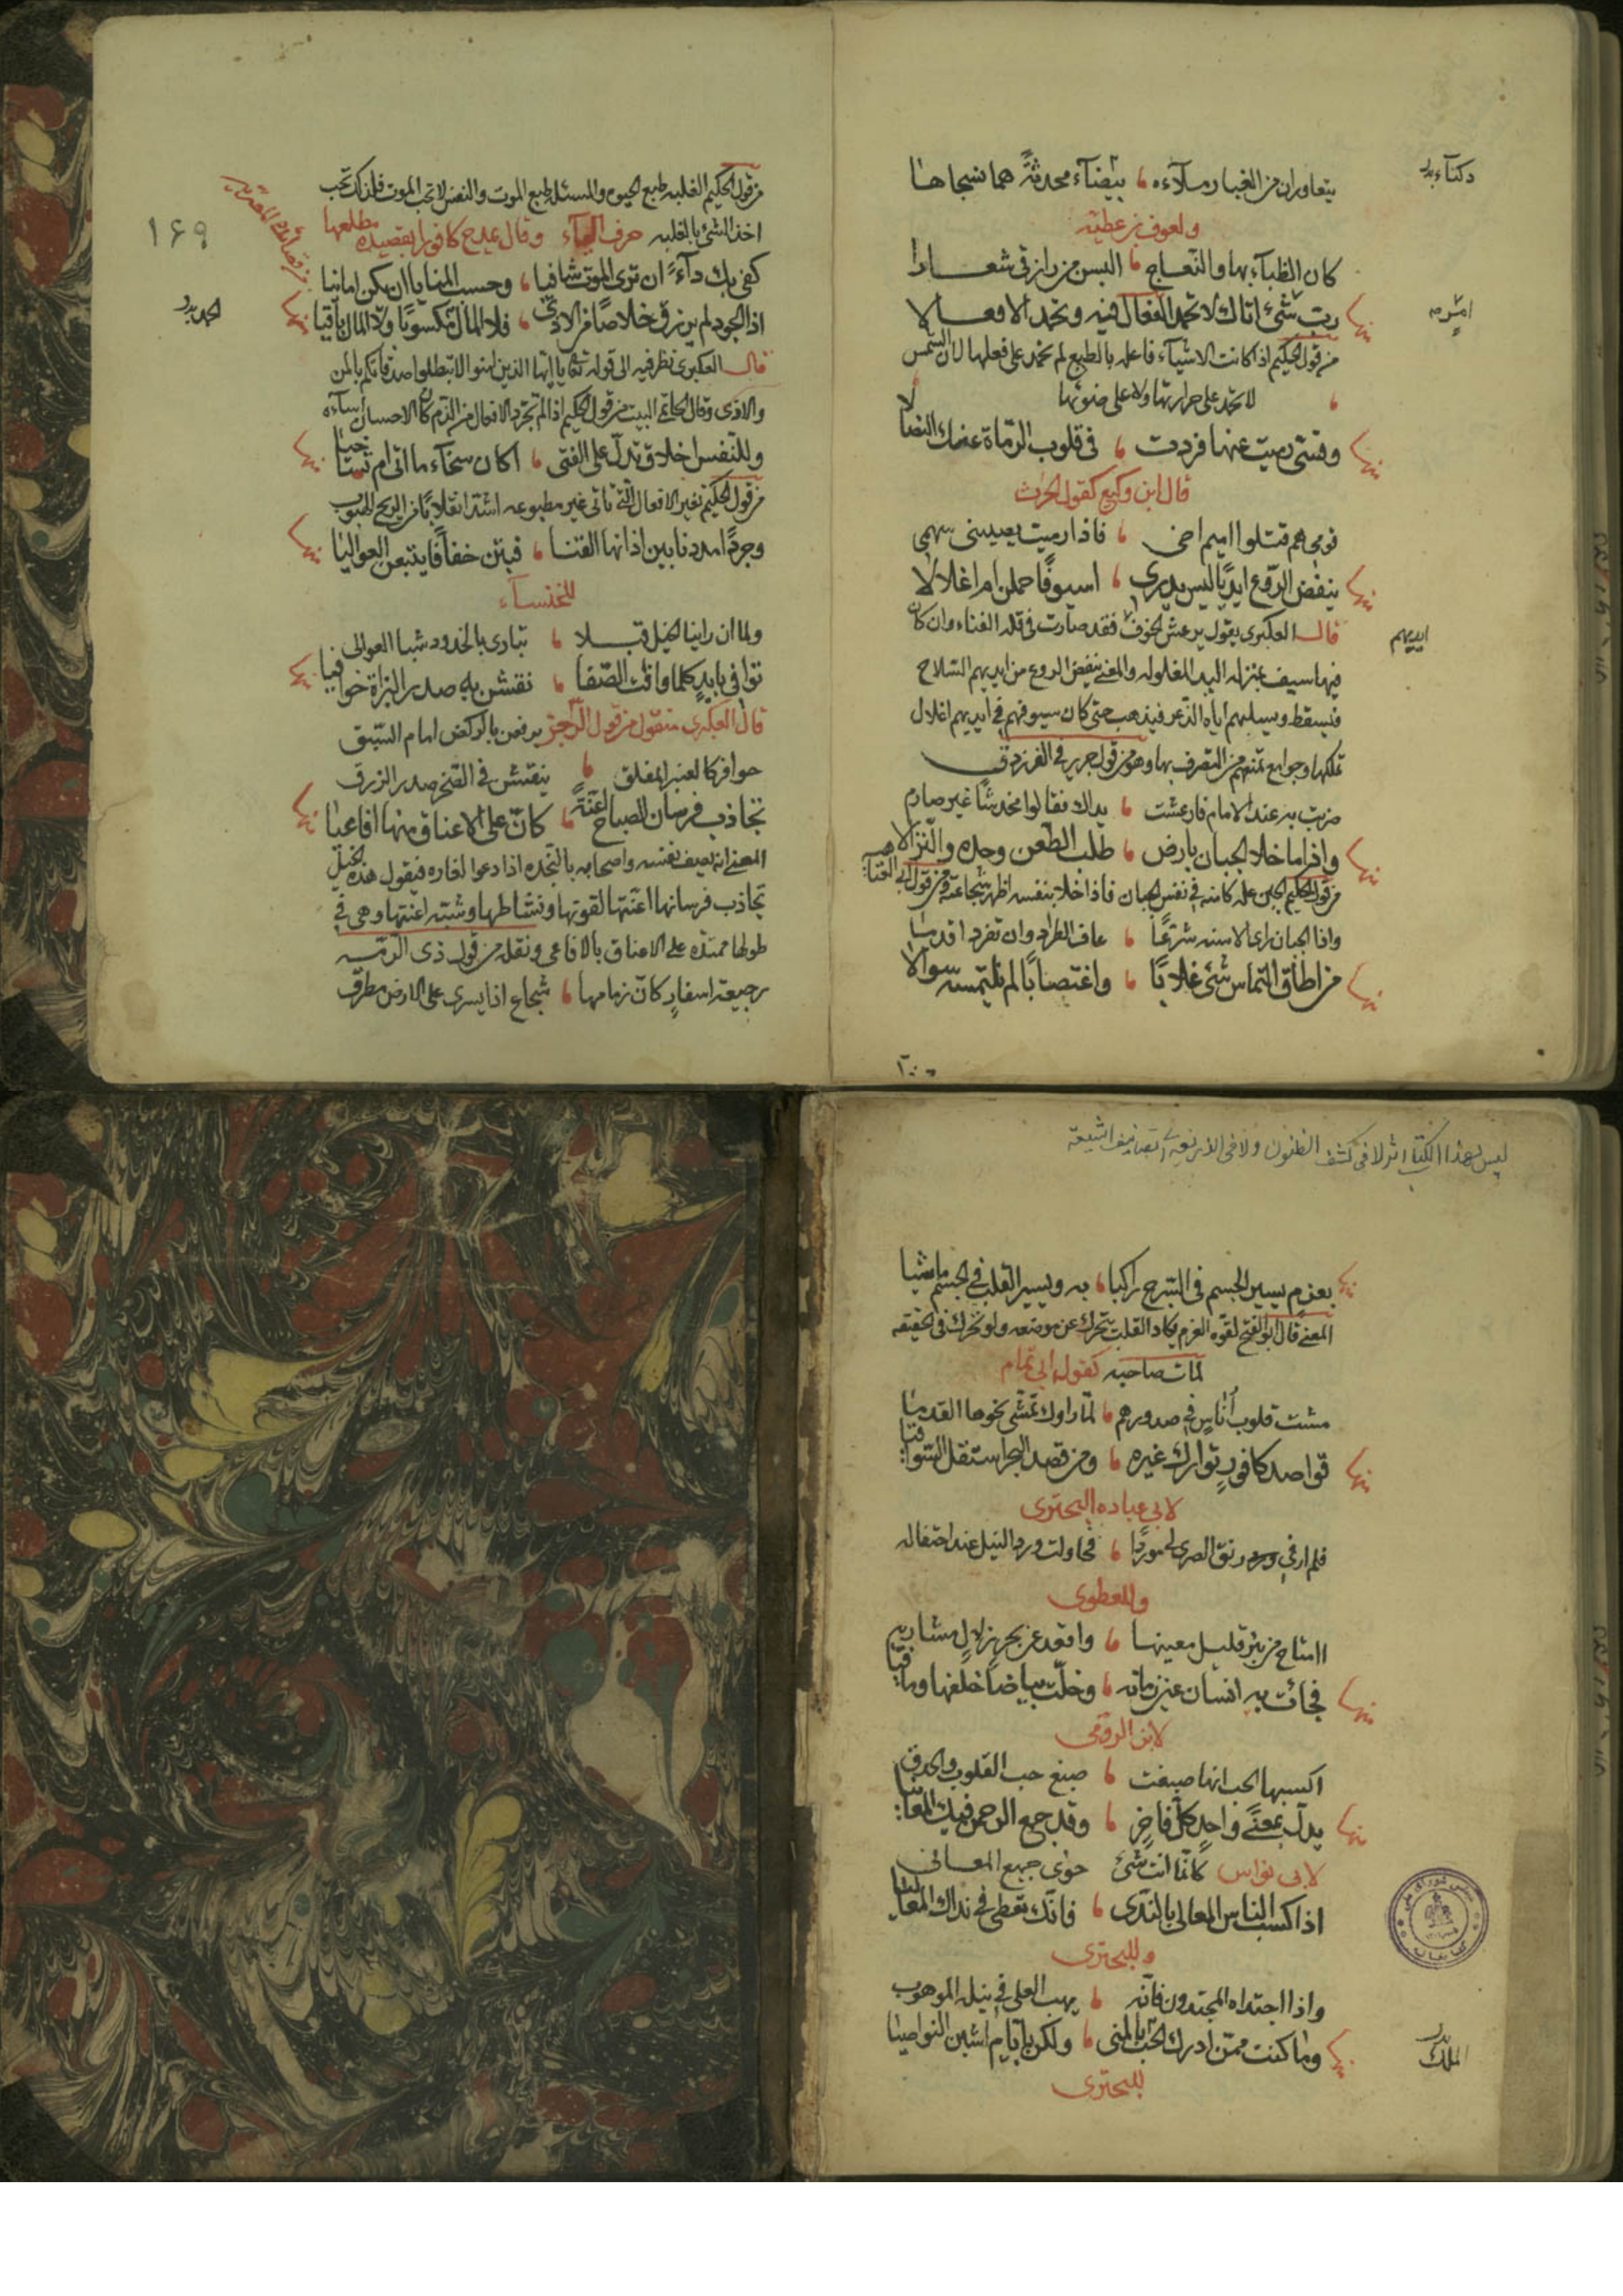 يتعاوران من الغبار ملآءه ، بيضآء محدثة هما نسجاها
ولعوف بن عطيه
كان الظبآء بها والنعاج ، البسن من رازقى شعارا
رب شئ اتاك لا تحمد الفعال فيه وتحمد الافعالا
من قول الحكيم اذا كانت الاشيآء فاعله بالطبع لم تحمد على فعلها لان الشمس
لا تحمد على حرارتها ولا على ضوئها
وقسى رميت عنها فردت ، فى قلوب الرماة عنك النصالا
قال ابن وكيع كقول الحرث
قومى هم قتلوا اميم اخى ، فاذا رميت يصيبنى سهمى
ينفض الروع ايديا ليس يدرى ، اسيوفا حملن ام اغلالا
قال العكبرى يقول يرعش الخوف فقد صارت فى قله الغناء وان كان
فيها سيف بمنزله اليد المغلوله والمعنى ينفض الروع من ايديهم السلاح
فيسقط ويسلبهم اياه الذعر فيذهب حتى كان سيوفهم فى ايديهم اغلال
تملكها وجوامع تمنعهم من التصرف بها وهو من قول جرير فى الفرزدق
ضربت به عند الامام فارعشت ، يداك فقالوا محدث غير صارم
واذا ما خلا الجبان بارض ، طلب الطعن وحده والنزالا
من قول الحكيم الجبن عله كامنه فى نفس الجبان فاذا خلا بنفسه اظهر شجاعته ومن قول ابى
واذا الجبان راى الاسنه شرعا ، عاف الطراد وان تفرد اقدما
من اطاق التماس شئ غلابا ، واغتصابا لم يلتمسه سوالا
ايديهم
من قول الحكيم الغلبه طبع الحيوه والمسئله طبع الموت والنفس لا تحب الموت فلذلك تحب
اخذ الشئ بالغلبه حرف اليآء وقال يمدح كافورا بقصيده مطلعها
١٦٩
كفى بك دآء ان ترى الموت شافيا ، وحسب المنايا ان يكن امانيا
اذا الجود لم يرزق خلاصا من الاذى ، فلا المال مكسوبا ولا المال باقيا
قال العكبرى نظر فيه الى قوله تعالى يا ايها الذين امنوا لا تبطلوا صدقاتكم بالمن
والاذى وقال الحاتمى البيت من قول الحكيم اذا لم تتجرد الافعال من الذم كان الاحسان اساءه
وللنفس اخلاق تدل على الفتى ، اكان سخآء ما اتى ام تساخيا
من قول الحكيم تغير الافعال التى تاتى غير مطبوعه اشد انقلابا من الريح الهبوب
وجردا مددنا بين اذانها القنا ، فبتن خفافا يتبعن العواليا
للخنسآء
ولما ان راينا الخيل قبلا ، تبارى بالخدود شبا العوالى
توافى بايد كلما وافت الصفا ، نقشن به صدر البزاة حوافيا
قال العكبرى منقول من قول الراجز يرفعن بالركض امام السبق
حوافر كالعنبر المفلق ، ينقشن فى الصخر صدر الزرق
تجاذب فرسان الصباح اعنة ، كان على الاعناق منها افاعيا
المعنى انه يصف نفسه واصحابه بالنجده اذا دعوا لغاره فيقول هذه الخيل
تجاذب فرسانها اعنتها لقوتها ونشاطها وشبه اعنتها وهى فى
طولها ممتده على الاعناق بالافاعى ونقله من قول ذى الرمه
رجيعة اسفار كان زمامها ، شجاع اذا يسرى على الارض مطرق
ليس لهذا الكتاب اثر لا فى كشف الظنون ولا فى الذريعة الى تصانيف الشيعة
بعزم يسير الجسم فى السرج راكبا ، به ويسير القلب فى الجسم ماشيا
المعنى قال ابو الفتح لقوه العزم يكاد القلب يتحرك عن موضعه ولو تحرك فى الحقيقه
لمات صاحبه كقول ابى تمام
مشت قلوب اناس فى صدورهم ، لما راوك تمشى نحوها القدما
قواصد كافور توارك غيره ، ومن قصد البحر استقل السواقيا
لابى عباده البحترى
فلم ارض رنق الصرى لى موردا ، فحاولت ورد النيل عند احتفاله
وللعطوى
اامتاح من بئر قليل معينها ، واقعد عن بحر زلال مشاربه
فجائت به انسان عين زمانه ، وخلت بياضا خلفها ومآقيا
لابن الرومى
اكسبها الحب انها صبغت ، صبغ حب القلوب والحدق
يدل بمعنى واحد كل فاخر ، وقد جمع الرحمن فيك المعانيا
لابى نواس كانما انت شئ حوى جميع المعانى
اذا كسب الناس المعالى بالندى ، فانك تعطى فى نداك المعاليا
وللبحترى
واذا اجتداه المجتدون فانه ، يهب العلى فى نيله الموهوب
وما كنت ممن ادرك الملك بالمنى ، ولكن بايام اشبن النواصيا
الملك
للبحترى